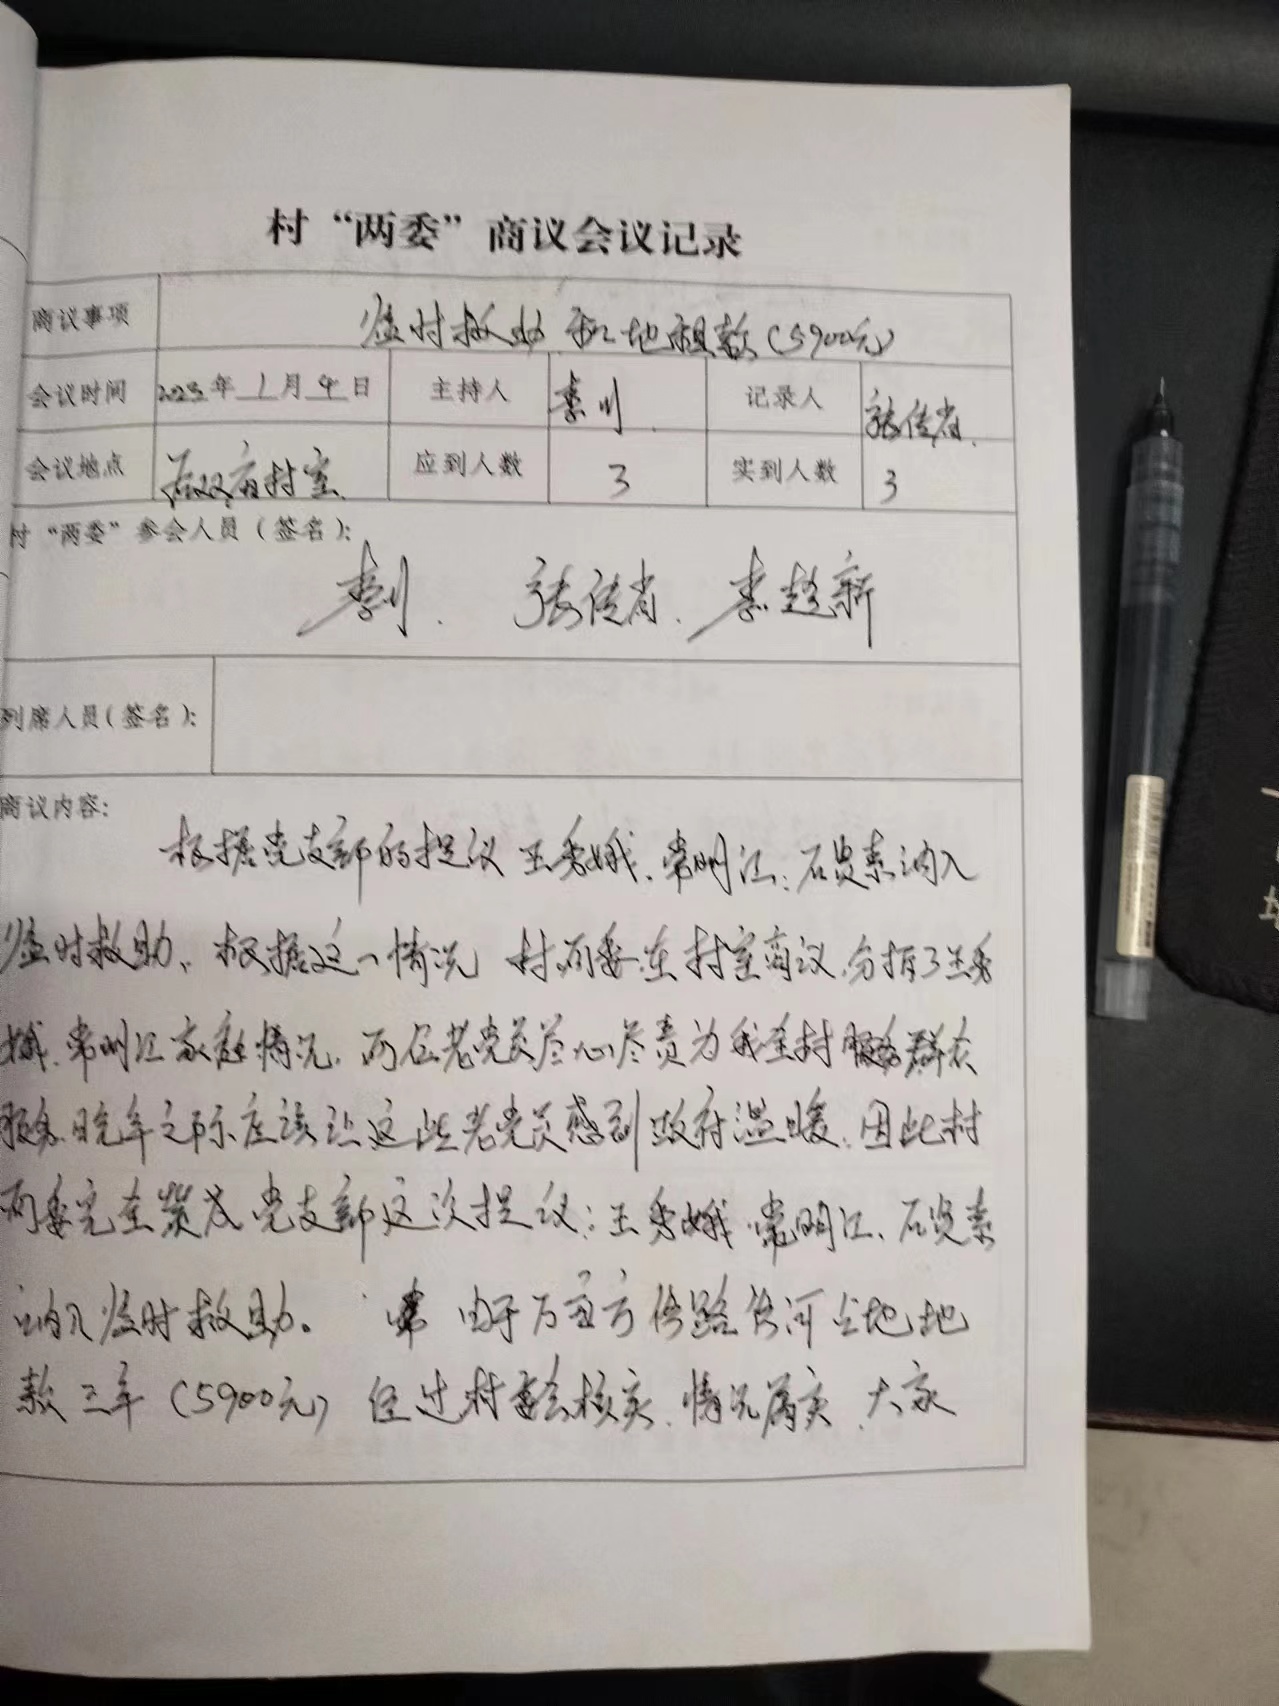 村“两委”商议会议记录
商议事项 临时救助和地租款(5900元)
会议时间 2023年1月4日 主持人 李川 记录人 张传省
会议地点 后双庙村室 应到人数 3 实到人数 3
村“两委”参会人员(签名):
李川 张传省 李超新
列席人员(签名):
商议内容:
根据党支部的提议 王秀娥、常明江、石贤素纳入
临时救助、根据这一情况 村两委在村室商议,分析了王秀
娥、常明江家庭情况,两位老党员尽心尽责为我全村服务群众
服务,晚年之际应该让这些老党员感到政府温暖,因此村
两委完全赞成党支部这次提议:王秀娥 常明江、石贤素
纳入临时救助。 由于万亩方修路修河占地地
款三年(5900元)经过村委会核实,情况属实,大家